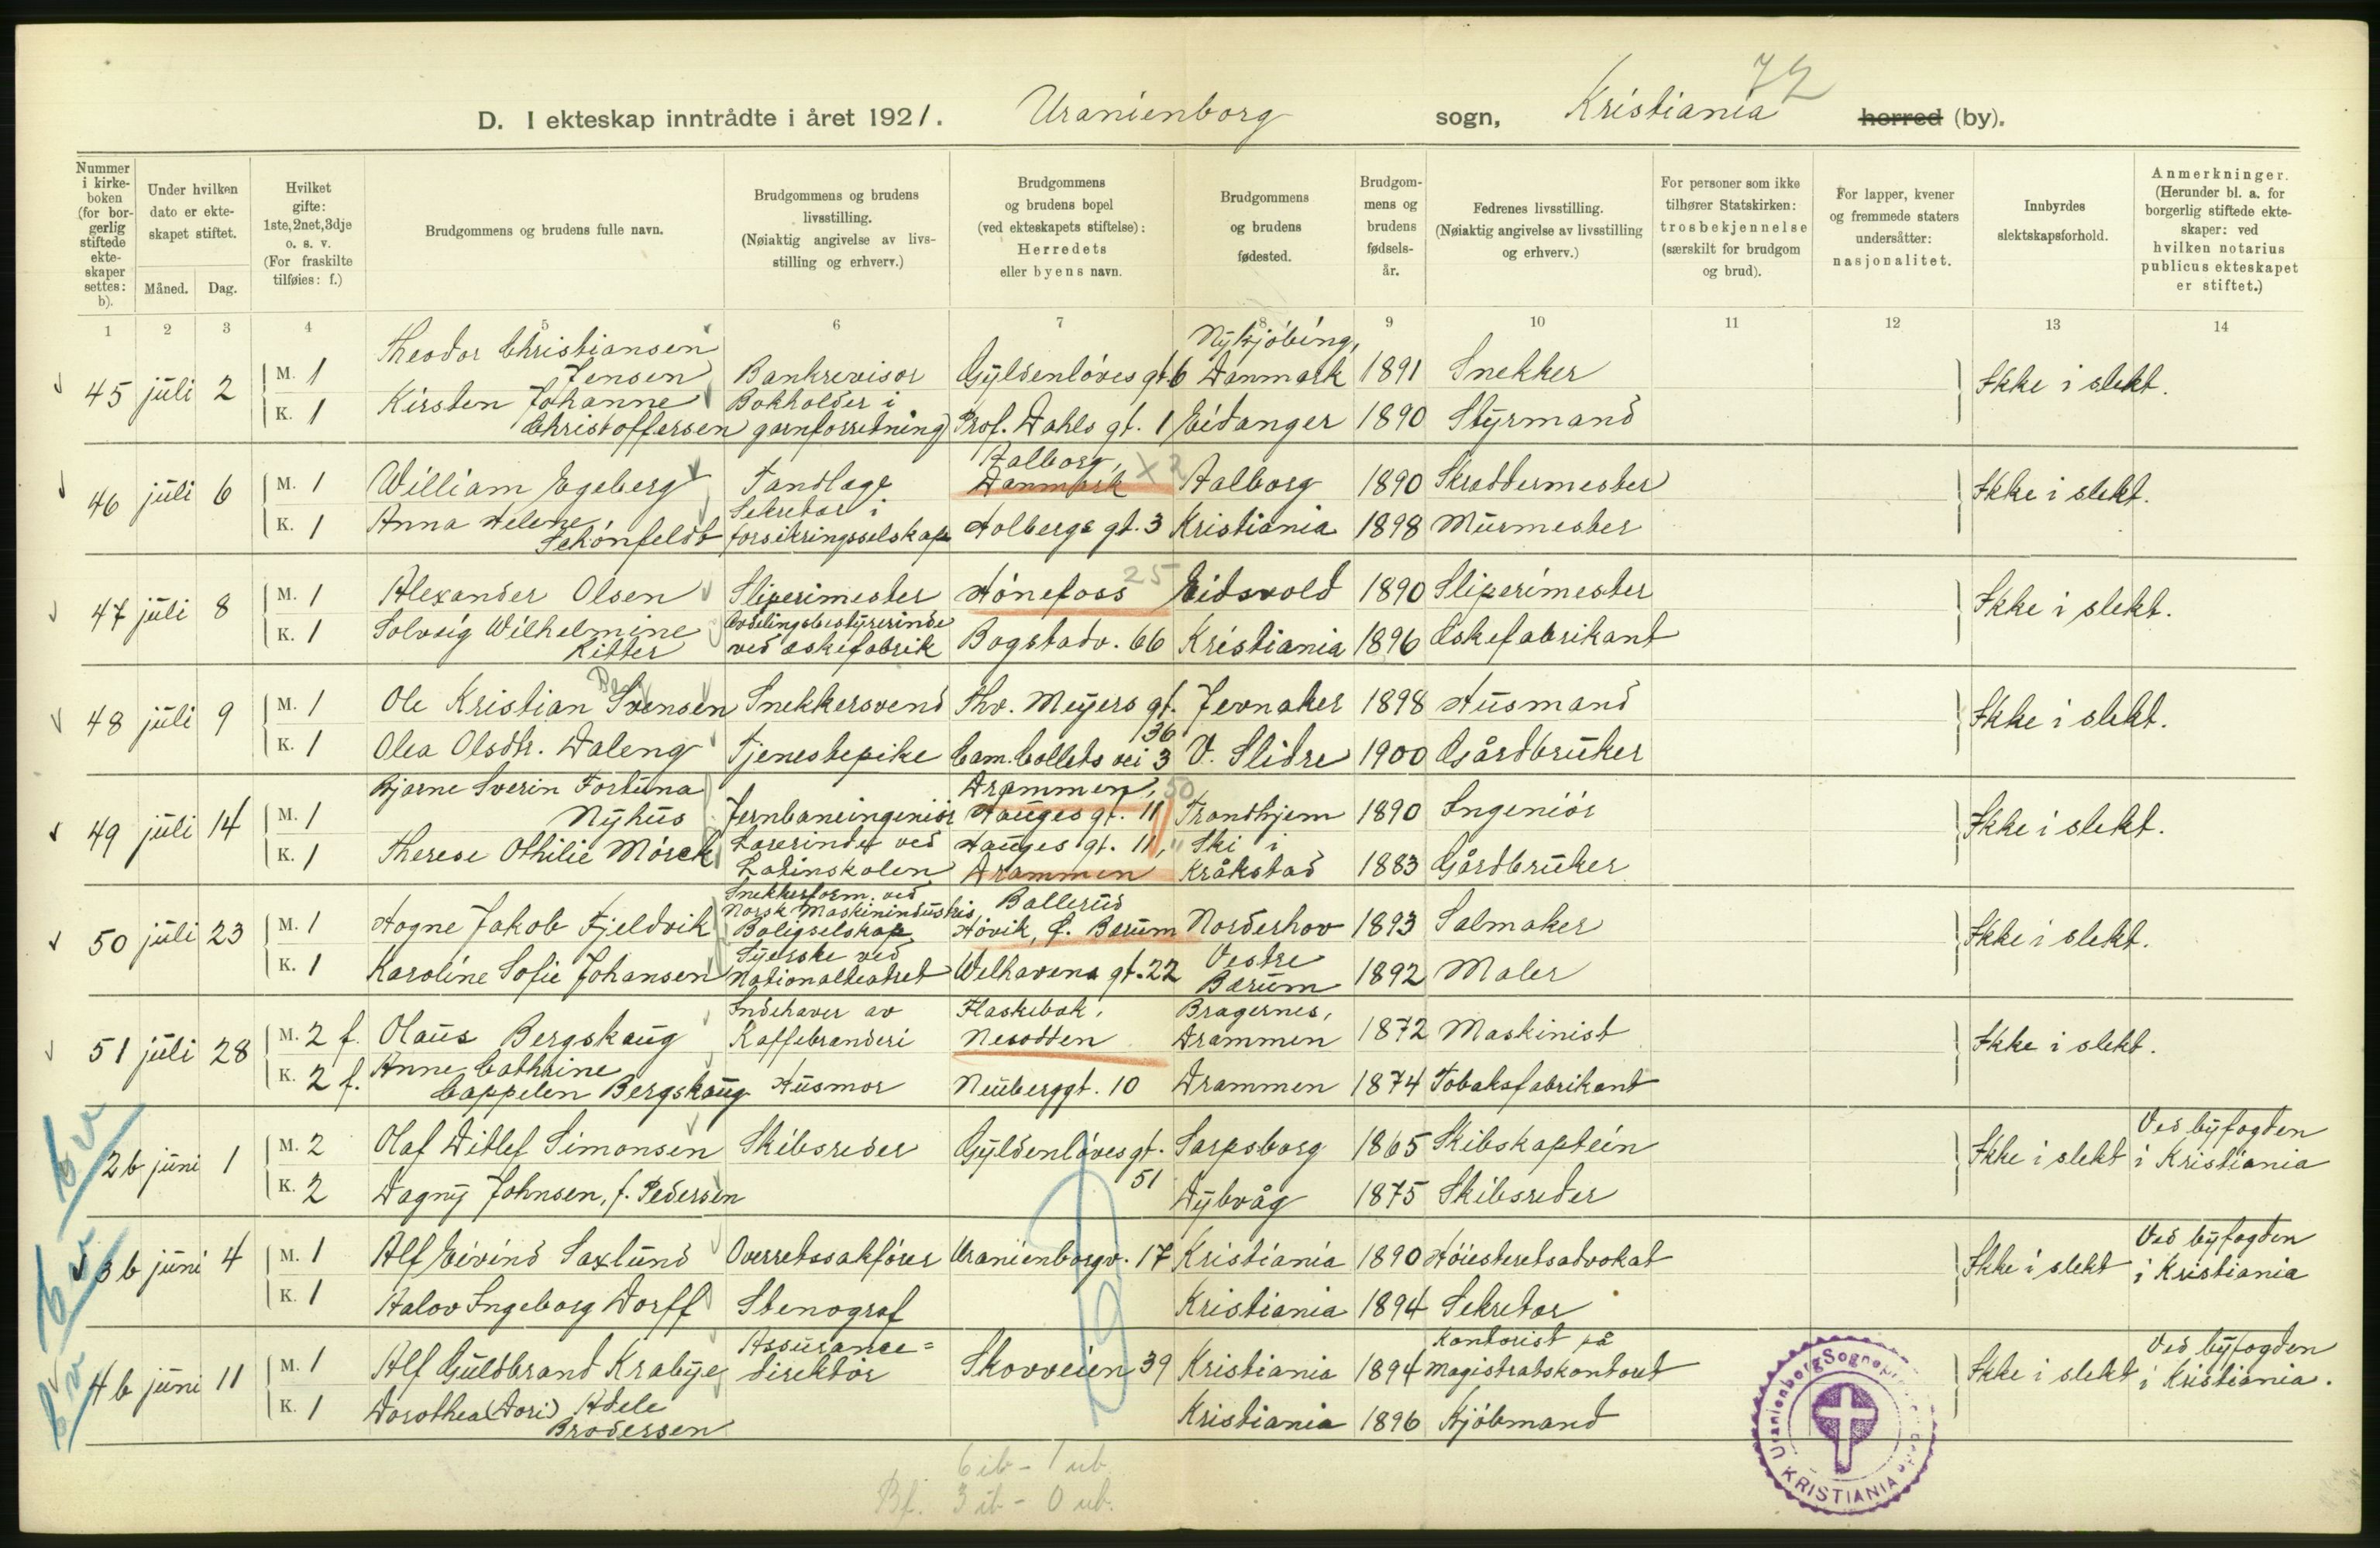 72
D. I ekteskap inntrådte i året 1921. Uranienborg sogn, Kristiania horred (by).
Nummer i kirkeboken (for borgerlig stiftede ekteskaper settes: b).
Under hvilken dato er ekteskapet stiftet.
Måned. Dag.
Hvilket gifte: 1ste, 2net, 3dje o. s. v. (For fraskilte tilføies: f.)
Brudgommens og brudens fulle navn.
Brudgommens og brudens livsstilling. (Nøiaktig angivelse av livsstilling og erhverv.)
Brudgommens og brudens bopel (ved ekteskapets stiftelse): Herredets eller byens navn.
Brudgommens og brudens fødested.
Brudgommens og brudens fødselsår.
Fedrenes livsstilling. (Nøiaktig angivelse av livsstilling og erhverv.)
For personer som ikke tilhører Statskirken: trosbekjennelse (særskilt for brudgom og brud).
For lapper, kvener og fremmede staters undersåtter: nasjonalitet.
Innbyrdes slektskapsforhold.
Anmerkninger. (Herunder bl. a. for borgerlig stiftede ekteskaper: ved hvilken notarius publicus ekteskapet er stiftet.)
1 2 3 4 5 6 7 8 9 10 11 12 13 14
45 juli 2 M. 1 Theodor Christiansen Jensen Bankrevisor Gyldenløves gt. 6 Nykjøbing, Danmark 1891 Snekker Ikke i slekt.
K. 1 Kirsten Johanne Christoffersen Bokholder i garnforretning Prof. Dahls gt. 1 Eidanger 1890 Styrmand
46 juli 6 M. 1 William Egeberg Tandlæge Aalborg, Danmark X2 Aalborg 1890 Skræddermester Ikke i slekt.
K. 1 Anna Helene Schönfeldt Sekretær i forsikringsselskap Holbergs gt. 3 Kristiania 1898 Murmester
47 juli 8 M. 1 Alexander Olsen Sliperimester Hønefoss 25 Eidsvold 1890 Sliperimester Ikke i slekt.
K. 1 Solveig Wilhelmine Ritter Avdelingsbestyrerinde ved æskefabrik Bogstadv. 66 Kristiania 1896 Æskefabrikant
48 juli 9 M. 1 Ole Kristian Svensen Snekkersvend Thv. Meyers gt. 36 Jevnaker 1898 Husmand Ikke i slekt.
K. 1 Olea Olsdtr. Daleng Tjenestepike Cam. Colletts vei 3 V. Slidre 1900 Gårdbruker
49 juli 14 M. 1 Bjarne Sverin Fortuna Nyhus Jernbaneingeniør Drammen, 50 Hauges gt. 11 Trondhjem 1890 Ingeniør Ikke i slekt.
K. 1 Therese Othilie Mørck Lærerinde ved Latinskolen Hauges gt. 11, Drammen Ski i Kråkstad 1883 Gårdbruker
50 juli 23 M. 1 Hogne Jakob Fjeldvik Snekkerform. ved Norsk Maskinindustris Boligselskap Ballerud Høvik, Ø. Bærum Norderhov 1893 Salmaker Ikke i slekt.
K. 1 Karoline Sofie Johansen Syerske ved Nationalteatret Welhavens gt. 22 Vestre Bærum 1892 Maler
51 juli 28 M. 2 f. Olaus Bergskaug Indehaver av Kaffebrænderi Flaskebæk, Nesodden Bragernes, Drammen 1872 Maskinist Ikke i slekt.
K. 2 f. Anne Cathrine Cappelen Bergskaug Husmor Neuberggt. 10 Drammen 1874 Tobaksfabrikant
2 b juni 1 M. 2 Olaf Ditlef Simonsen Skibsreder Gyldenløves gt. 51 Sarpsborg 1865 Skibskaptein Ikke i slekt Ved byfogden i Kristiania
K. 2 Dagny Johnsen, f. Pedersen Dybvåg 1875 Skibsreder
3 b juni 4 M. 1 Alf Eivind Saxlund Overretssakfører Uranienborgv. 17 Kristiania 1890 Høiesteretsadvokat Ikke i slekt Ved byfogden i Kristiania
K. 1 Aslov Ingeborg Dorff Stenograf Kristiania 1894 Sekretær
4 b juni 11 M. 1 Alf Guldbrand Krabye Assurance=direktør Skovveien 39 Kristiania 1894 Kontorist på Magistratskontoret Ikke i slekt Ved byfogden i Kristiania.
K. 1 Dorothea (Dori) Adele Brodersen Kristiania 1896 Kjøbmand
6 ib - 1 ub.
Bf. 3 ib - 0 ub.
Uranienborg Sogneprest KRISTIANIA